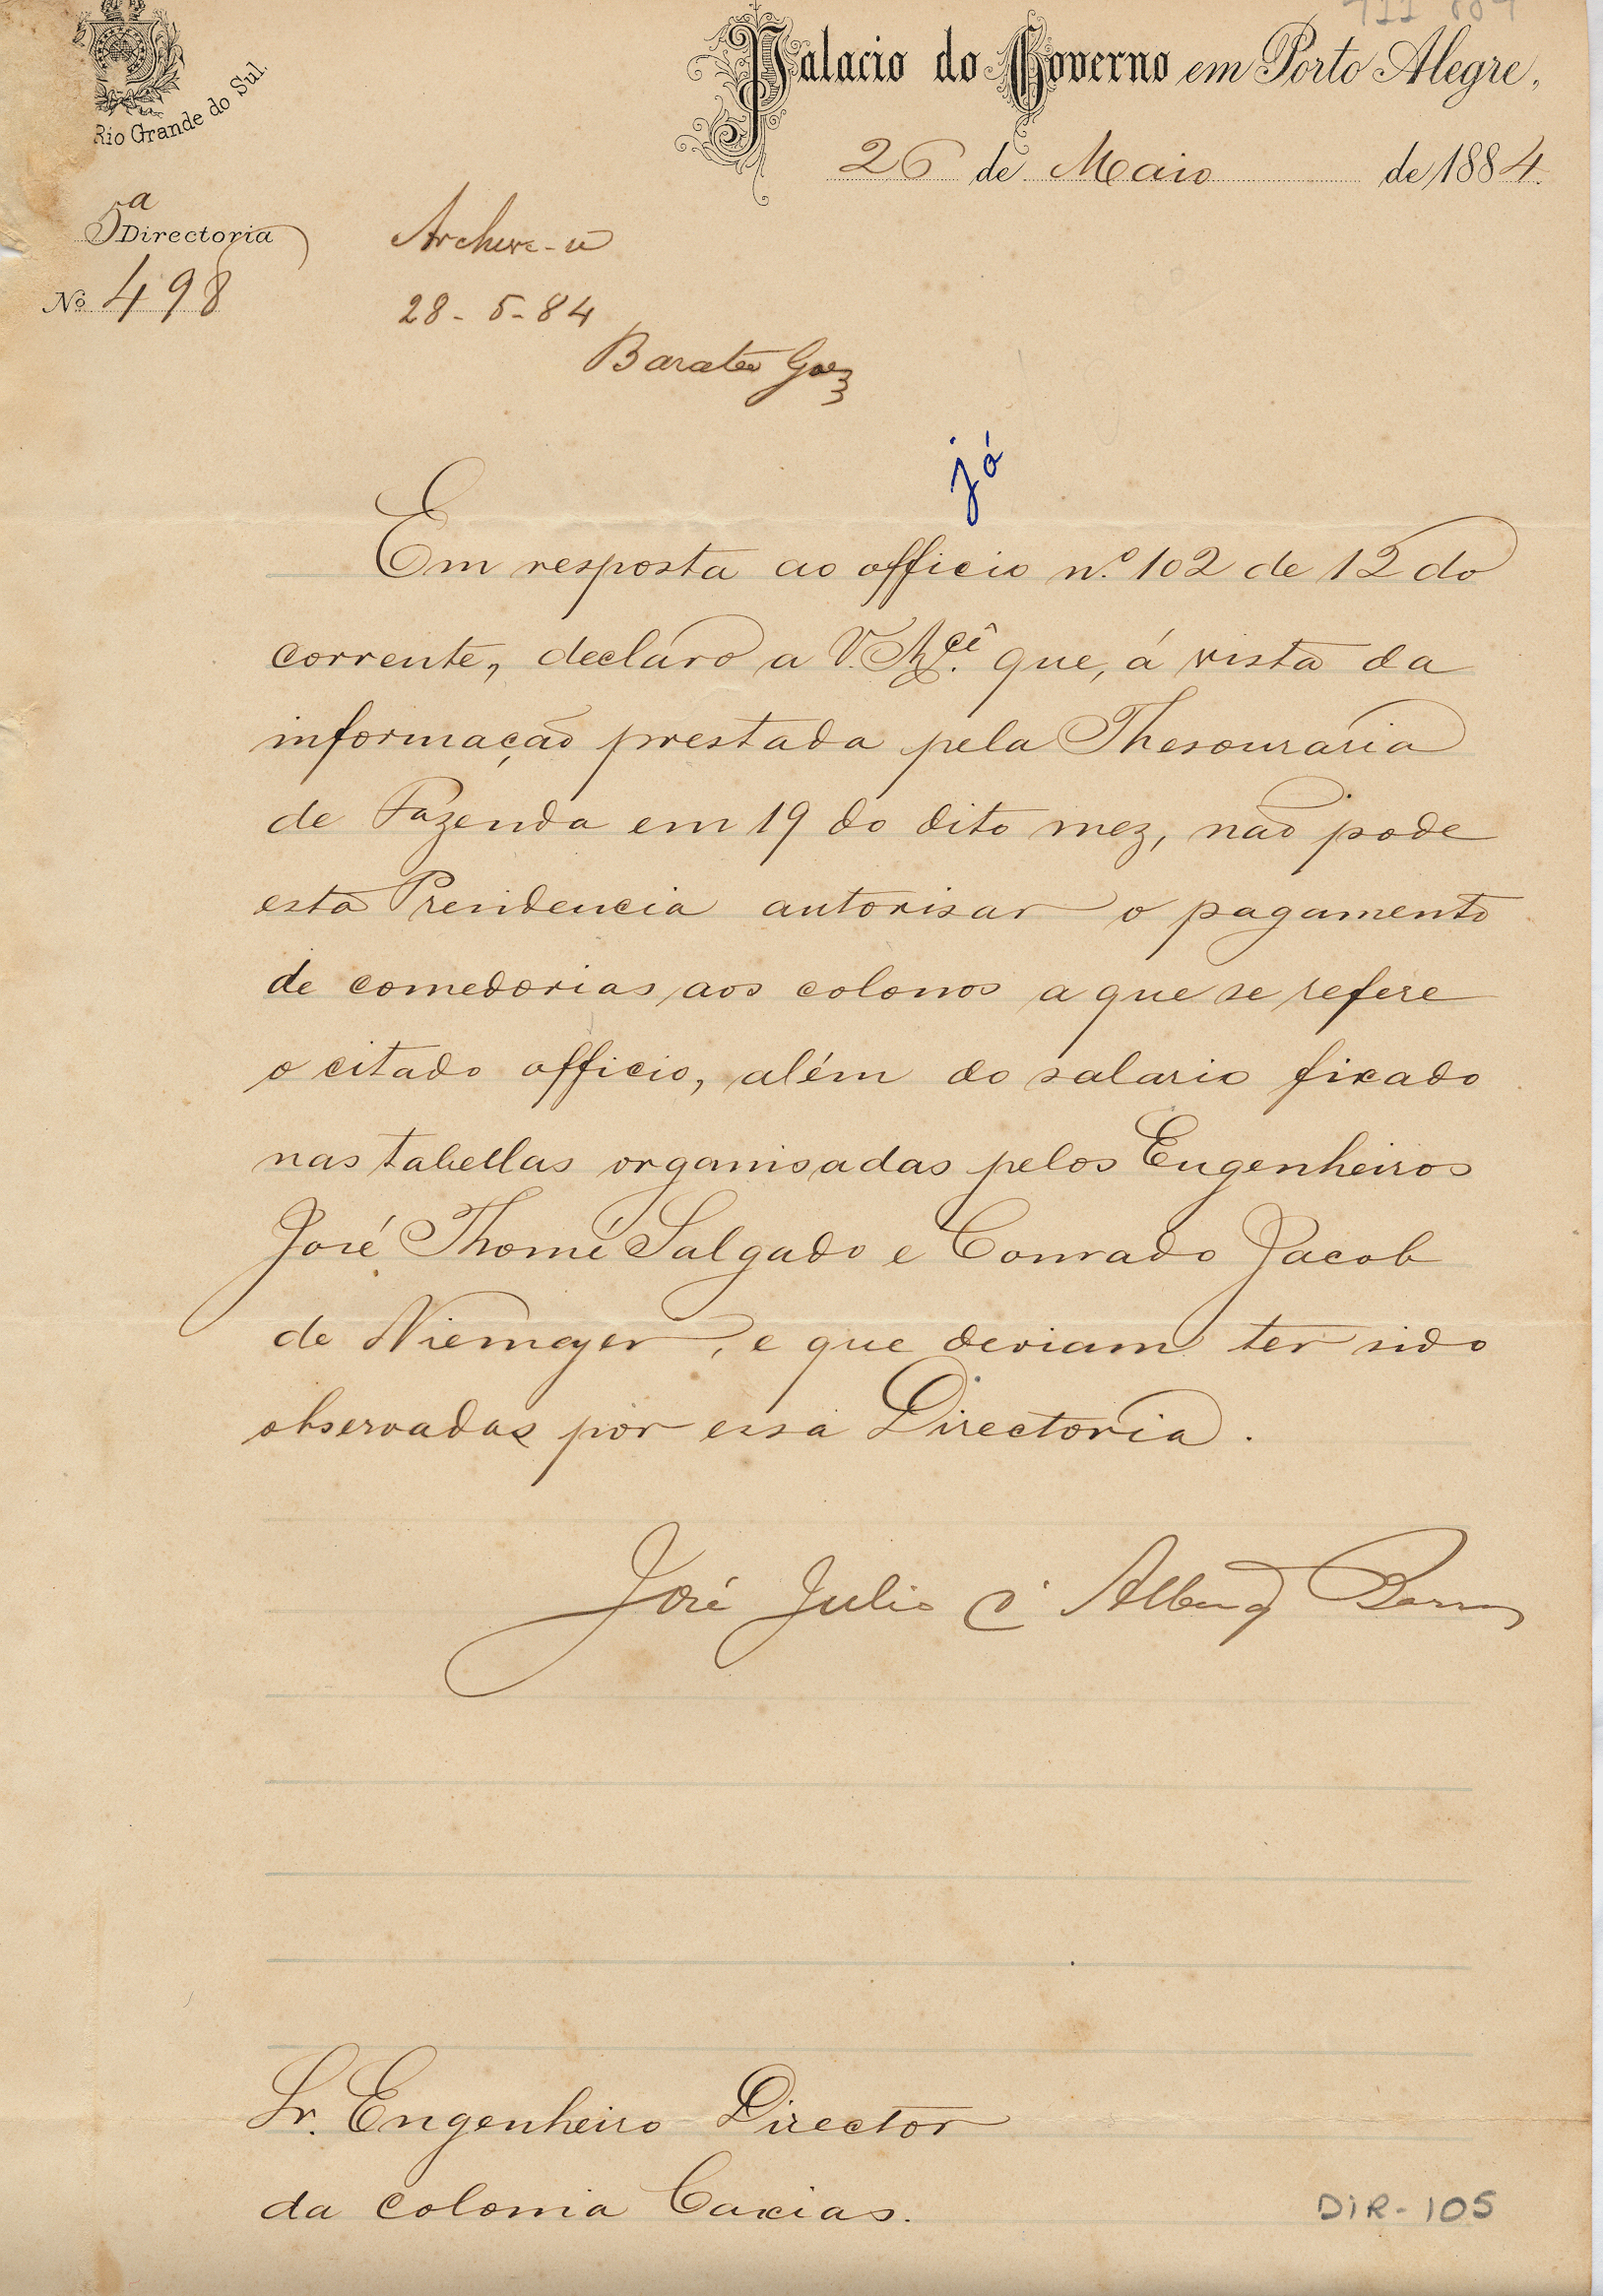 Palacio do Governo em Porto Alegre,
26 de Maio de 1884.
Rio Grande do Sul.
5ª Directoria
Nº 498
Archive-se
28-5-84
Barata Goez
já
Em resposta ao officio n.º 102 de 12 do
corrente, declaro a V. Mcê. que, á vista da
informação prestada pela Thesouraria
de Fazenda em 19 do dito mez, não pode
esta Presidencia autorisar o pagamento
de comedorias aos colonos a que se refere
o citado officio, além do salario fixado
nas tabellas organisadas pelos Engenheiros
José Thomé Salgado e Conrado Jacob
de Niemeyer, e que deviam ter sido
observadas por essa Directoria.
José Julio d' Albuq Barros
Sr. Engenheiro Director
da colonia Caxias.
DIR-105